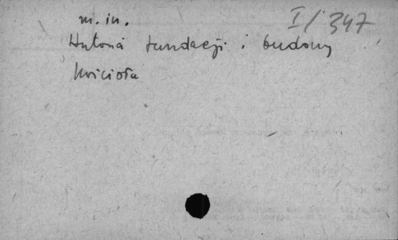 m. in. I/347
Historia fundacji i budowy
kościoła